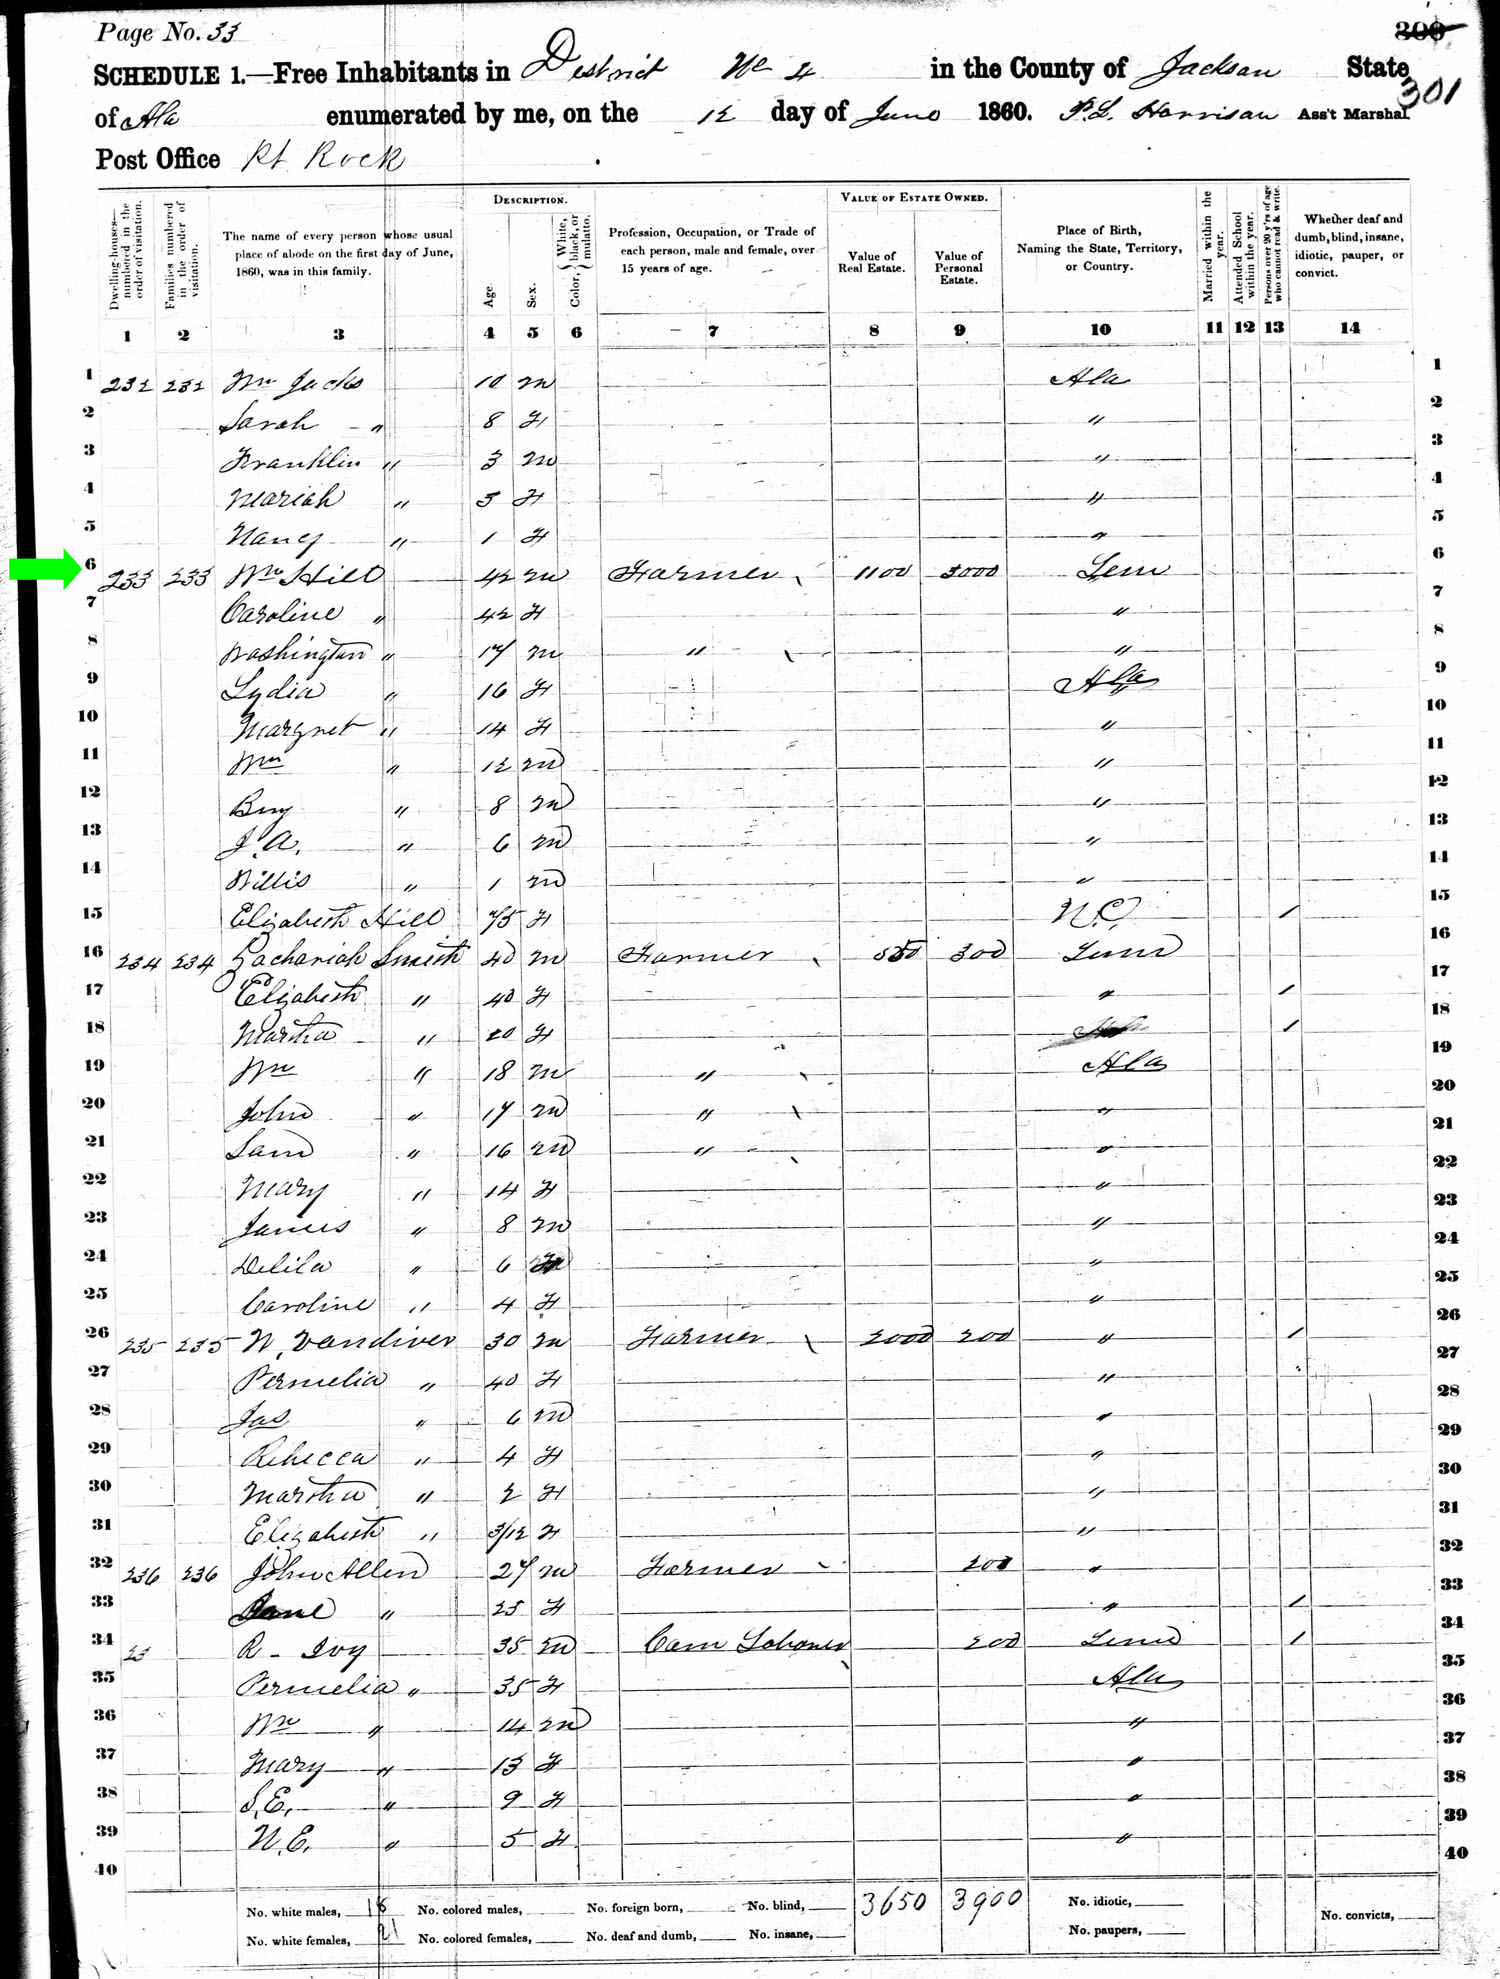 Page No. 33
300
SCHEDULE 1.—Free Inhabitants in District No 4 in the County of Jackson State
301
of Ala enumerated by me, on the 12 day of June 1860. P.L. Harrison Ass't Marshal.
Post Office Rt Rock
DESCRIPTION.
VALUE OF ESTATE OWNED.
Dwelling-houses—numbered in the order of visitation.
Families numbered in the order of visitation.
The name of every person whose usual place of abode on the first day of June, 1860, was in this family.
Age.
Sex.
Color, { White, black, or mulatto.
Profession, Occupation, or Trade of each person, male and female, over 15 years of age.
Value of Real Estate.
Value of Personal Estate.
Place of Birth, Naming the State, Territory, or Country.
Married within the year.
Attended School within the year.
Persons over 20 y'rs of age who cannot read & write.
Whether deaf and dumb, blind, insane, idiotic, pauper, or convict.
1 2 3 4 5 6 7 8 9 10 11 12 13 14
1 232 232 Wm Jacks 10 m Ala 1
2 Sarah " 8 f " 2
3 Franklin " 3 m " 3
4 Mariah " 3 f " 4
5 Nancy " 1 f " 5
6 233 233 Wm Hill 42 m Farmer 1100 3000 Tenn 6
7 Caroline " 42 f " 7
8 Washington " 17 m " " 8
9 Lydia " 16 f Ala 9
10 Margret " 14 f " 10
11 Wm " 12 m " 11
12 Bny " 8 m " 12
13 J.A. " 6 m " 13
14 Willis " 1 m " 14
15 Elizabeth Hill 75 f N.C. / 15
16 234 234 Zachariah Smith 40 m Farmer 550 300 Tenn 16
17 Elizabeth " 40 f " / 17
18 Martha " 20 f / 18
19 Wm " 18 m " Ala 19
20 John " 17 m " " 20
21 Sam " 16 m " " 21
22 Mary " 14 f " 22
23 James " 8 m " 23
24 Delila " 6 f " 24
25 Caroline " 4 f " 25
26 235 235 W. Vandiver 30 m Farmer 2000 200 " / 26
27 Permelia " 40 f " 27
28 Jas " 6 m " 28
29 Rebecca " 4 f " 29
30 Martha " 2 f " 30
31 Elizabeth " 3/12 f " 31
32 236 236 John Allen 27 m Farmer 200 " 32
33 " 25 f " / 33
34 23 R - Ivy 35 m 200 Tenn / 34
35 Permelia " 35 f Ala 35
36 Wm " 14 m " 36
37 Mary " 13 f " 37
38 S.E. " 9 f " 38
39 N.E. " 5 f " 39
40 40
No. white males, 18 No. colored males, No. foreign born, No. blind, 3650 3900 No. idiotic, No. convicts,
No. white females, 21 No. colored females, No. deaf and dumb, No. insane, No. paupers,